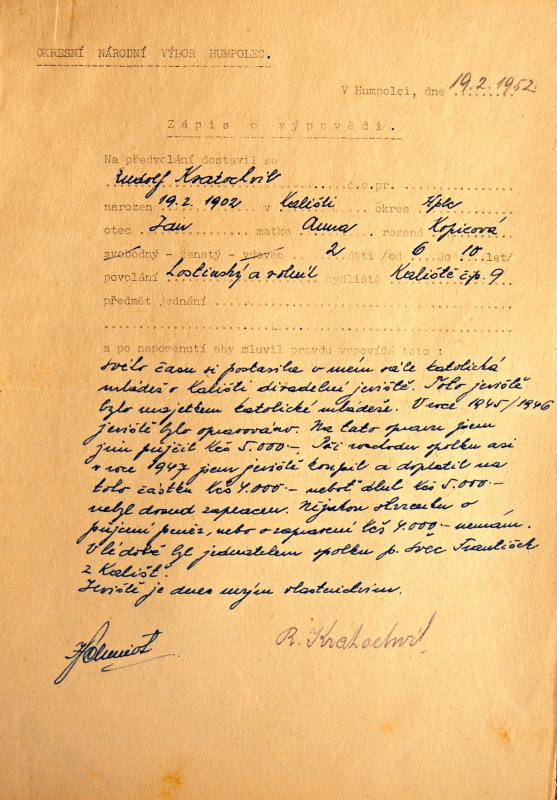 OKRESNÍ NÁRODNÍ VÝBOR HUMPOLEC.
V Humpolci, dne 19.2.1952.
Zápis o výpovědi.
Na předvolání dostavil se
Rudolf Kratochvil č.o.pr.
narozen 19.2. 1902 v Kališti okres Hplc
otec Jan matka Anna rozená Kopicová
svobodný - ženatý - vdovec 2 děti /od 6 do 10 let/
povolání hostinský a rolník bydliště Kaliště čp. 9
předmět jednání
a po napomenutí aby mluvil pravdu vypovídá toto :
Svého času si postavila v mém sále katolická
mládež v Kališti divadelní jeviště. Toto jeviště
bylo majetkem katolické mládeže. V roce 1945/1946
jeviště bylo opravováno. Na tuto opravu jsem
jim půjčil Kčs 5.000.- Při rozchodu spolku asi
v roce 1947 jsem jeviště koupil a doplatil na
toto částku Kčs 4.000.- neboť dluh Kčs 5.000.-
nebyl dosud zaplacen. Nějakou stvrzenku o
půjčení peněz, nebo o zaplacení Kčs 4.000.- nemám.
V té době byl jednatelem spolku p. Švec František
z Kališť.
Jeviště je dnes mým vlastnictvím.
R. Kratochvíl